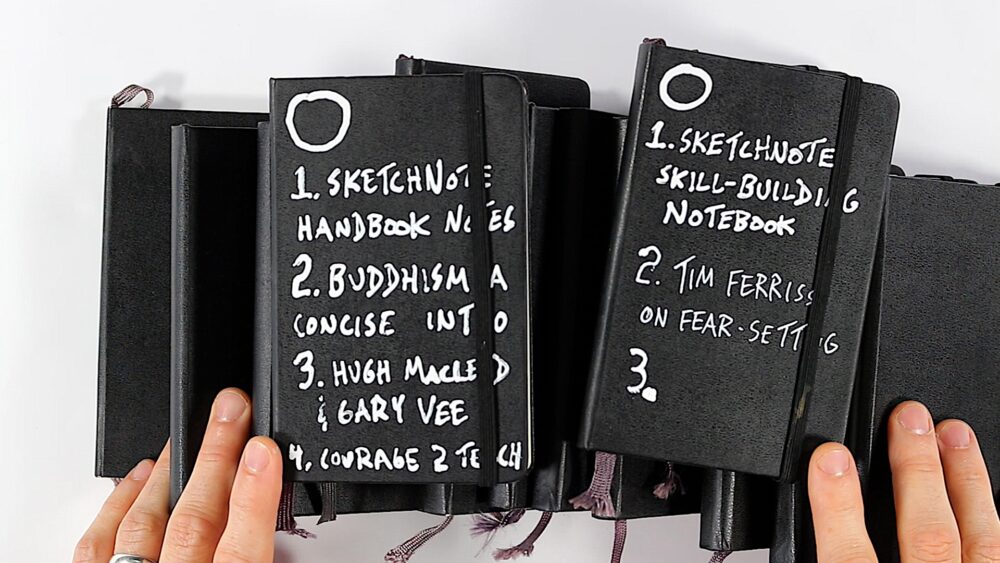 1. SKETCHNOTE
HANDBOOK NOTES
2. BUDDHISM A
CONCISE INTRO
3. HUGH MACLEOD
& GARY VEE
4. COURAGE 2 TEACH
1. SKETCHNOTE
SKILL-BUILDING
NOTEBOOK
2. TIM FERRISS
ON FEAR-SETTING
3.